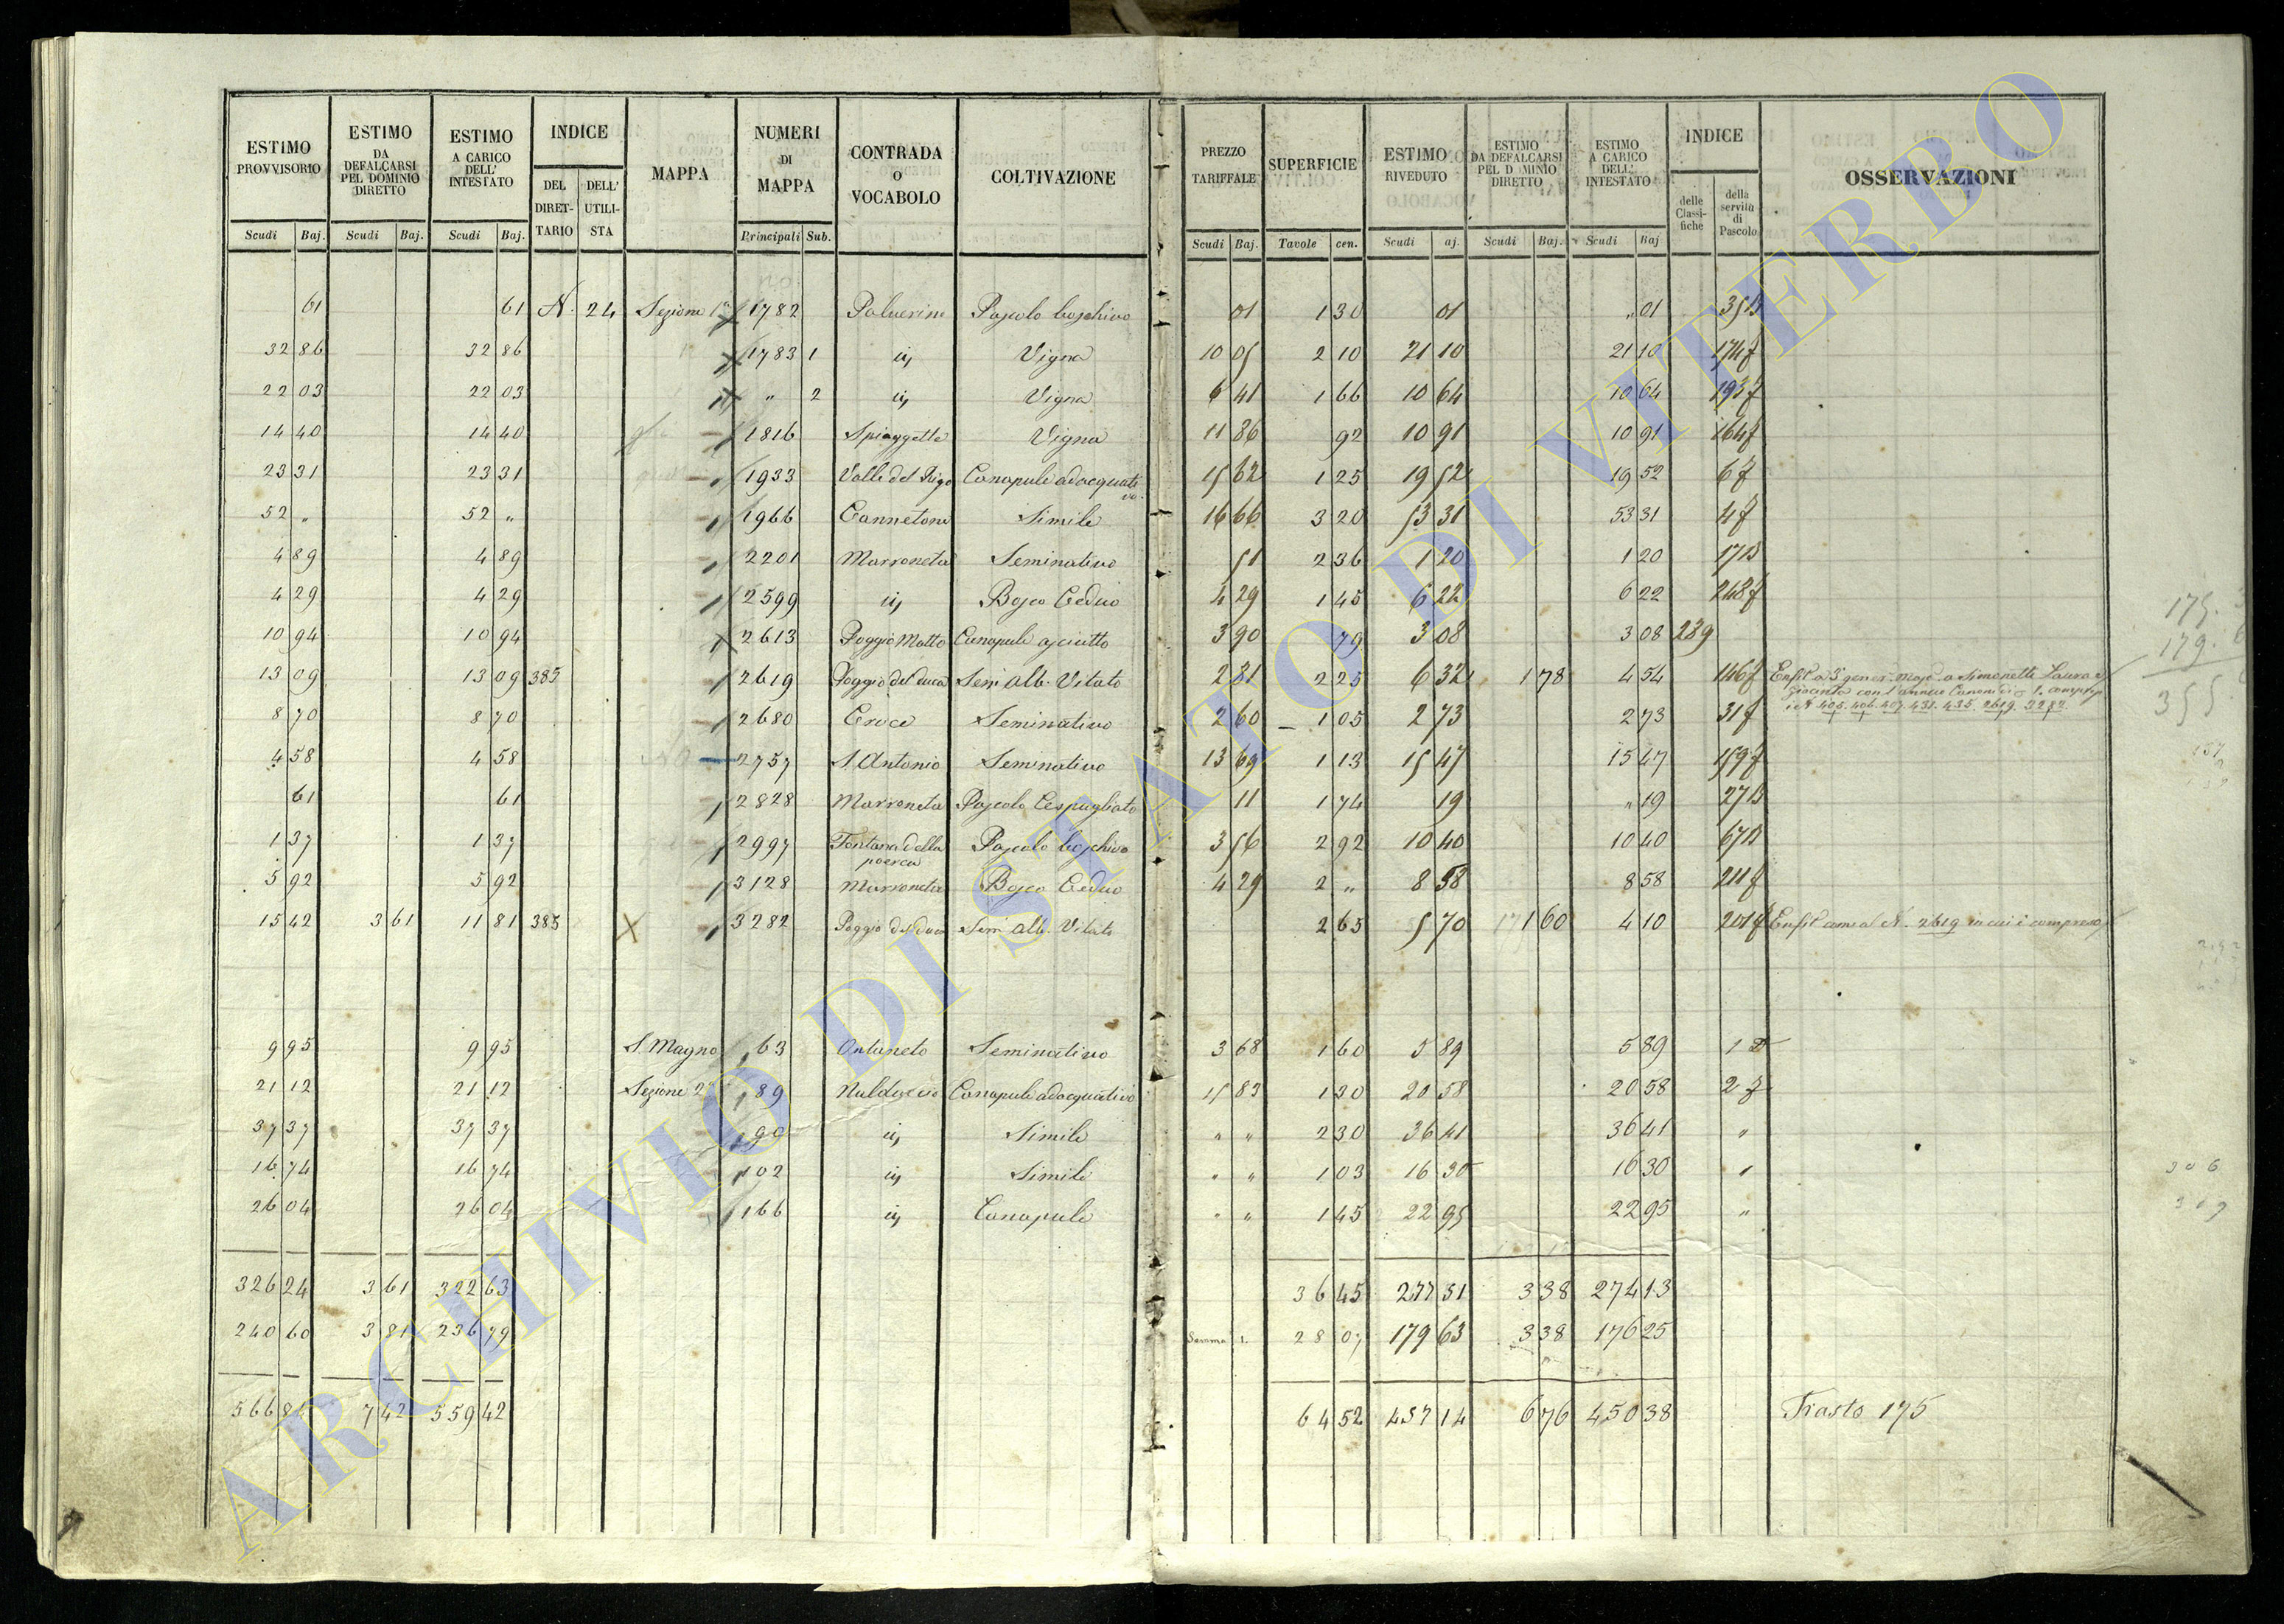 ESTIMO PROVVISORIO | ESTIMO DA DEFALCARSI PEL DOMINIO DIRETTO | ESTIMO A CARICO DELL' INTESTATO | INDICE | MAPPA | NUMERI DI MAPPA | CONTRADA O VOCABOLO | COLTIVAZIONE | PREZZO TARIFFALE | SUPERFICIE | ESTIMO RIVEDUTO | ESTIMO DA DEFALCARSI PEL D MINIO DIRETTO | ESTIMO A CARICO DELL' INTESTATO | INDICE | OSSERVAZIONI
DEL DIRETTARIO | DELL' UTILISTA | delle Classifiche | della servitù di Pascolo
Scudi | Baj. | Scudi | Baj. | Scudi | Baj. | Principali | Sub. | Scudi | Baj. | Tavole | cen. | Scudi | aj. | Scudi | Baj. | Scudi | Baj
61 | 61 | N. 24 | Sezione 1ª | 1782 | Polverine | Pascolo boschivo | 01 | 1 30 | 01 | " 01 | 35B
32 86 | 32 86 | 1783 1 | id, | Vigna | 10 05 | 2 10 | 21 10 | 21 10 | 174f
22 03 | 22 03 | " 2 | id, | Vigna | 6 41 | 1 66 | 10 64 | 10 64 | 193f
14 40 | 14 40 | 1816 | Spiaggette | Vigna | 11 86 | 92 | 10 91 | 10 91 | 164f
23 31 | 23 31 | 1933 | Valle del Rigo | Canapule adacquativo | 15 62 | 1 25 | 19 52 | 19 52 | 6f
52 " | 52 " | 1966 | Cannetone | Simile | 16 66 | 3 20 | 53 31 | 53 31 | 4f
4 89 | 4 89 | 2201 | Marroneta | Seminativo | 51 | 2 36 | 1 20 | 1 20 | 17B
4 29 | 4 29 | 2599 | id, | Bosco Ceduo | 4 29 | 1 45 | 6 22 | 6 22 | 248f
10 94 | 10 94 | 2613 | Poggio Matto | Canapule asciutto | 3 90 | 79 | 3 08 | 3 08 | 239
13 09 | 13 09 | 385 | 2619 | Poggio del duca | Sem Alb. Vitato | 2 81 | 2 25 | 6 32 | 1 78 | 4 54 | 146f | Enfit a 3ª gener. masc. a Simonetti Laura e
Giacinto con l'annuo Canone di 1. compresi
i N 405. 406. 407. 431. 435. 2619. 3282.
8 70 | 8 70 | 2680 | Croce | Seminativo | 2 60 | 1 05 | 2 73 | 2 73 | 31f
4 58 | 4 58 | 2757 | S. Antonio | Seminativo | 13 69 | 1 13 | 15 47 | 15 47 | 159f
61 | 61 | 2828 | Marroneta | Pascolo Cespugliato | 11 | 1 74 | 19 | " 19 | 27B
1 37 | 1 37 | 2997 | Fontana della porca | Pascolo boschivo | 3 56 | 2 92 | 10 40 | 10 40 | 67B
5 92 | 5 92 | 3128 | Marroneta | Bosco Ceduo | 4 29 | 2 " | 8 58 | 8 58 | 211f
15 42 | 3 61 | 11 81 | 385 | X | 3282 | Poggio del duca | Sem Alb. Vitato | 2 65 | 5 70 | 1 60 | 4 10 | 201f | Enfit come al N. 2619 in cui è compreso
9 95 | 9 95 | S. Magno | 63 | Ontaneto | Seminativo | 3 68 | 1 60 | 5 89 | 5 89 | 1
21 12 | 21 12 | Sezione 2ª | 89 | Canapule adacquativo | 15 83 | 1 30 | 20 58 | 20 58 | 2 f
37 37 | 37 37 | 90 | id, | Simile | " " | 2 30 | 36 41 | 36 41 | "
16 74 | 16 74 | 102 | id, | Simile | " " | 1 03 | 16 30 | 16 30 | "
26 04 | 26 04 | 166 | id, | Canapule | " " | 1 45 | 22 95 | 22 95 | "
326 24 | 3 61 | 322 63 | 36 45 | 277 51 | 3 38 | 274 13
240 60 | 3 81 | 236 79 | Somma | 28 07 | 179 63 | 3 38 | 176 25
566 84 | 7 42 | 559 42 | 64 52 | 457 14 | 6 76 | 450 38 | Trasto 175
175.
179.
355
306
309
ARCHIVIO DI STATO DI VITERBO